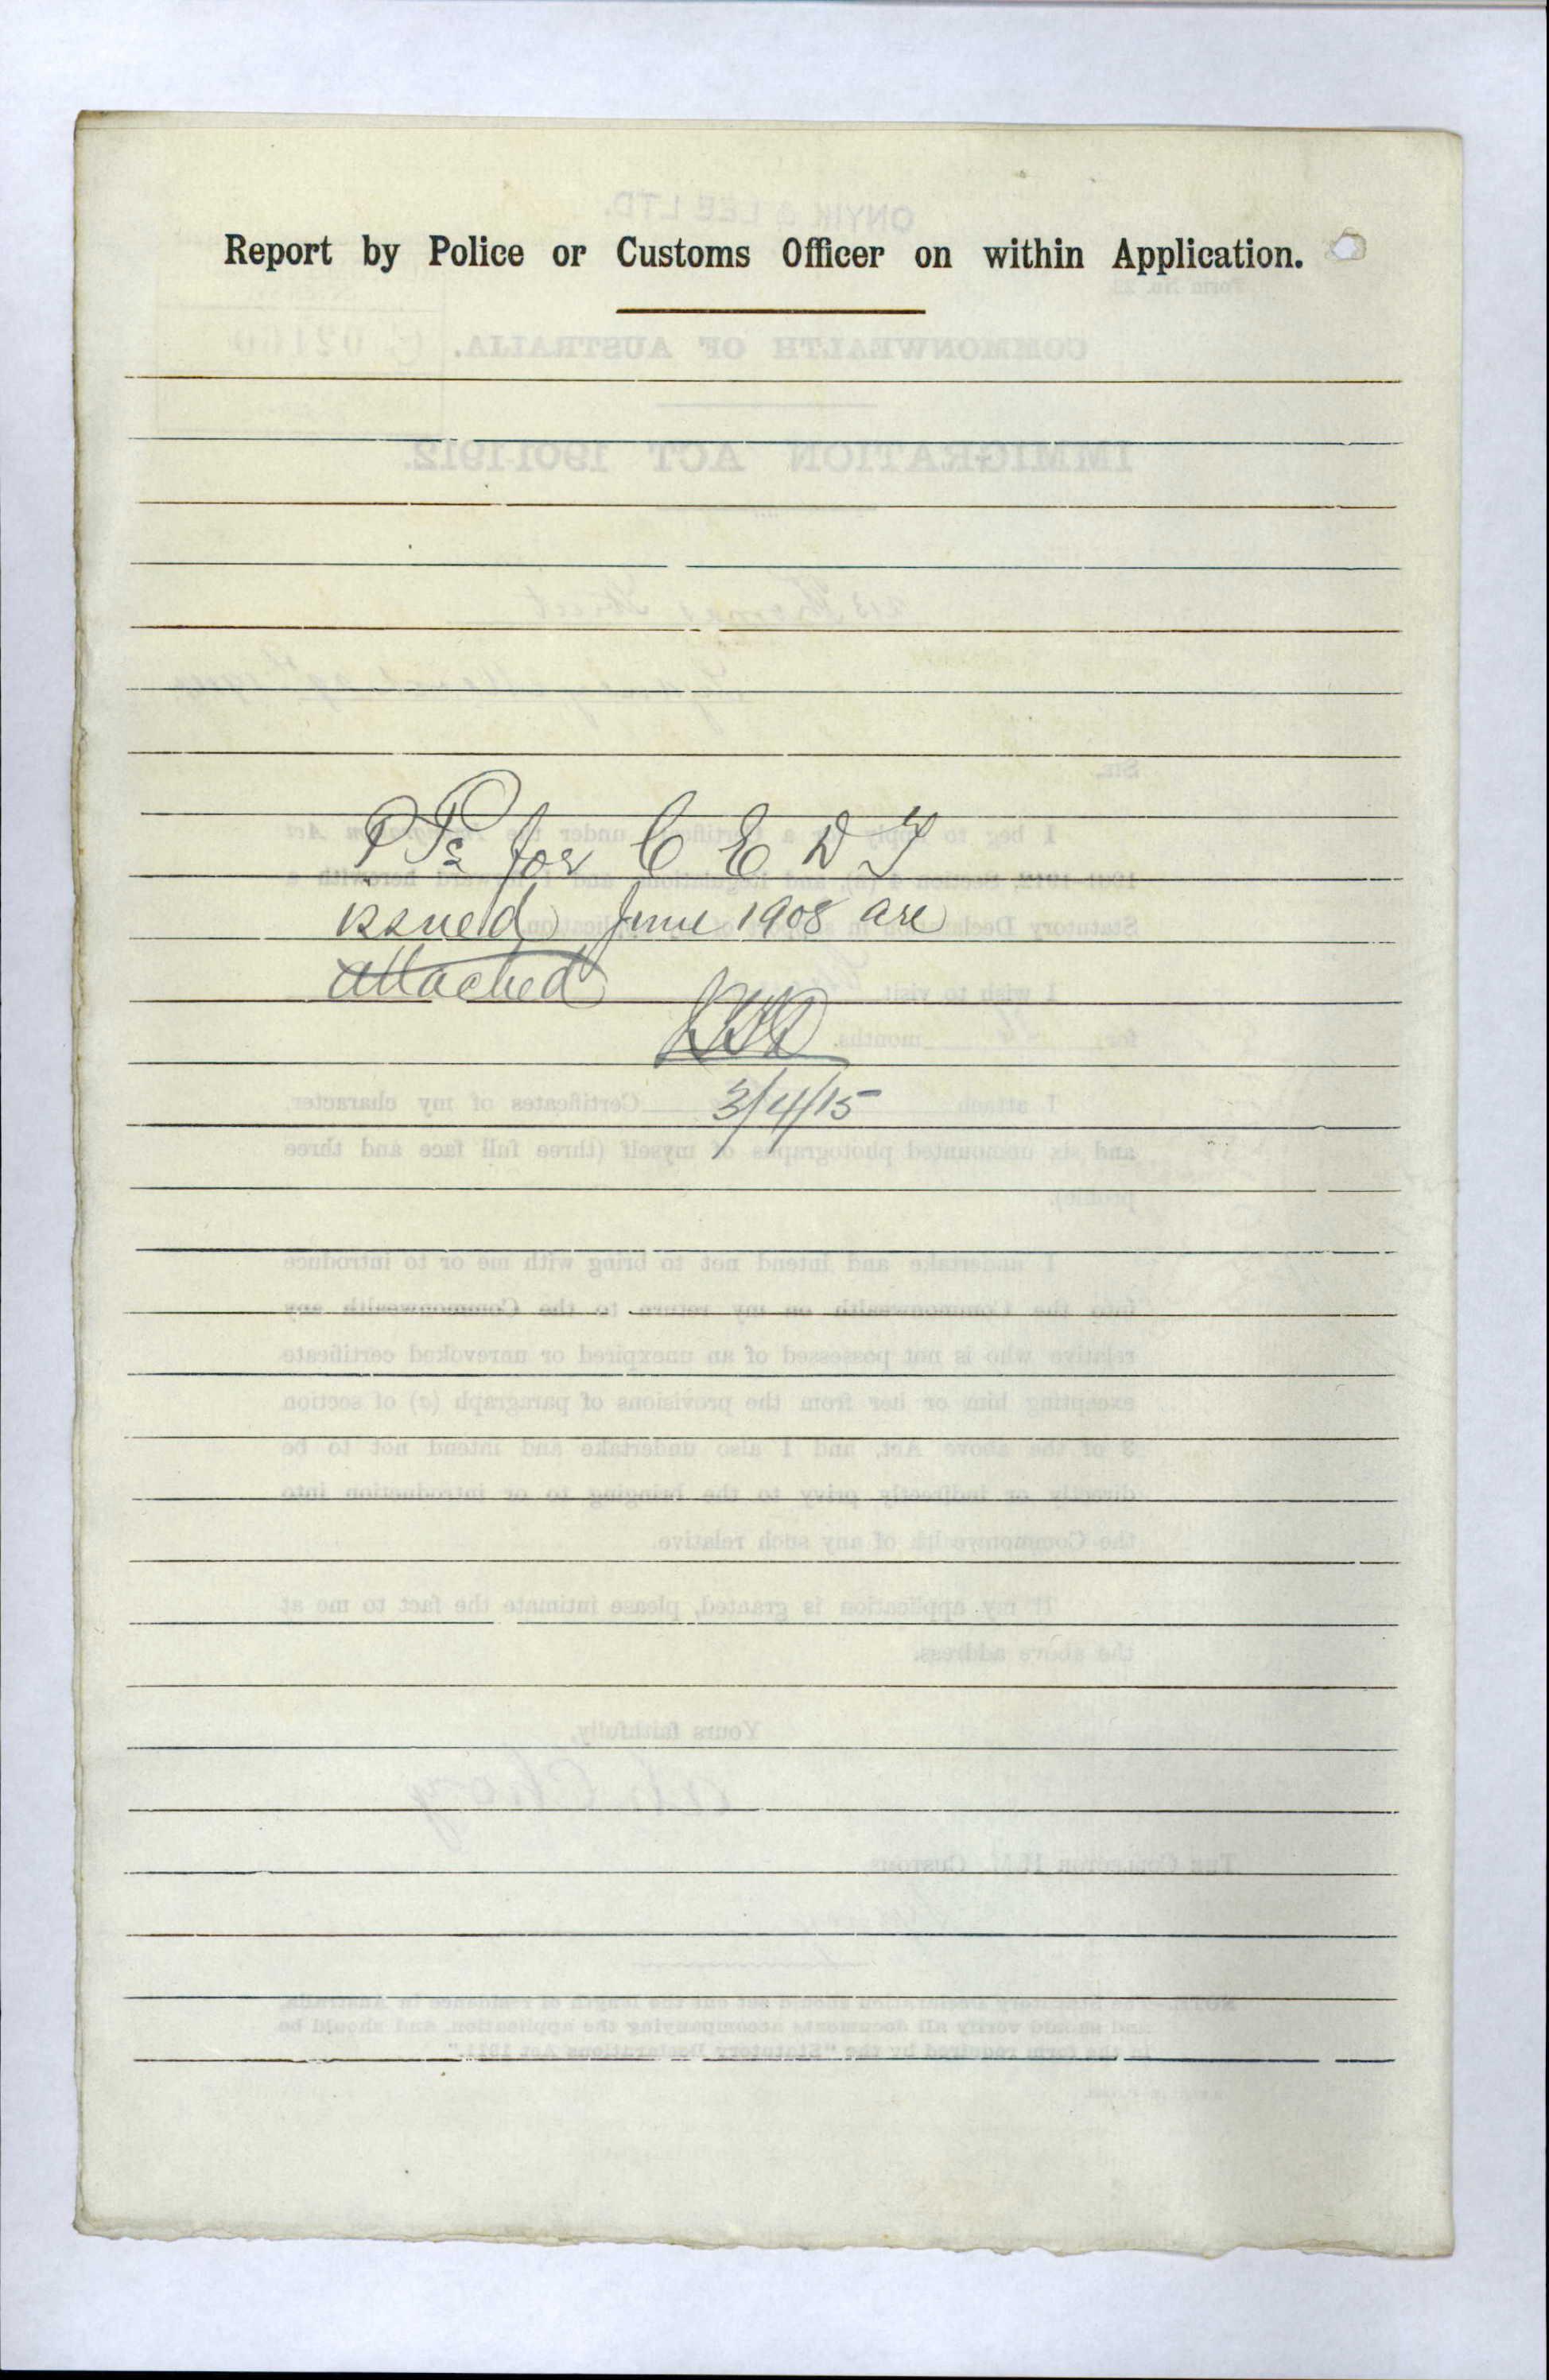 Report by Police or Customs Officer on within Application.
PPs for C E D T
issued June 1908 are
attached
3/4/15